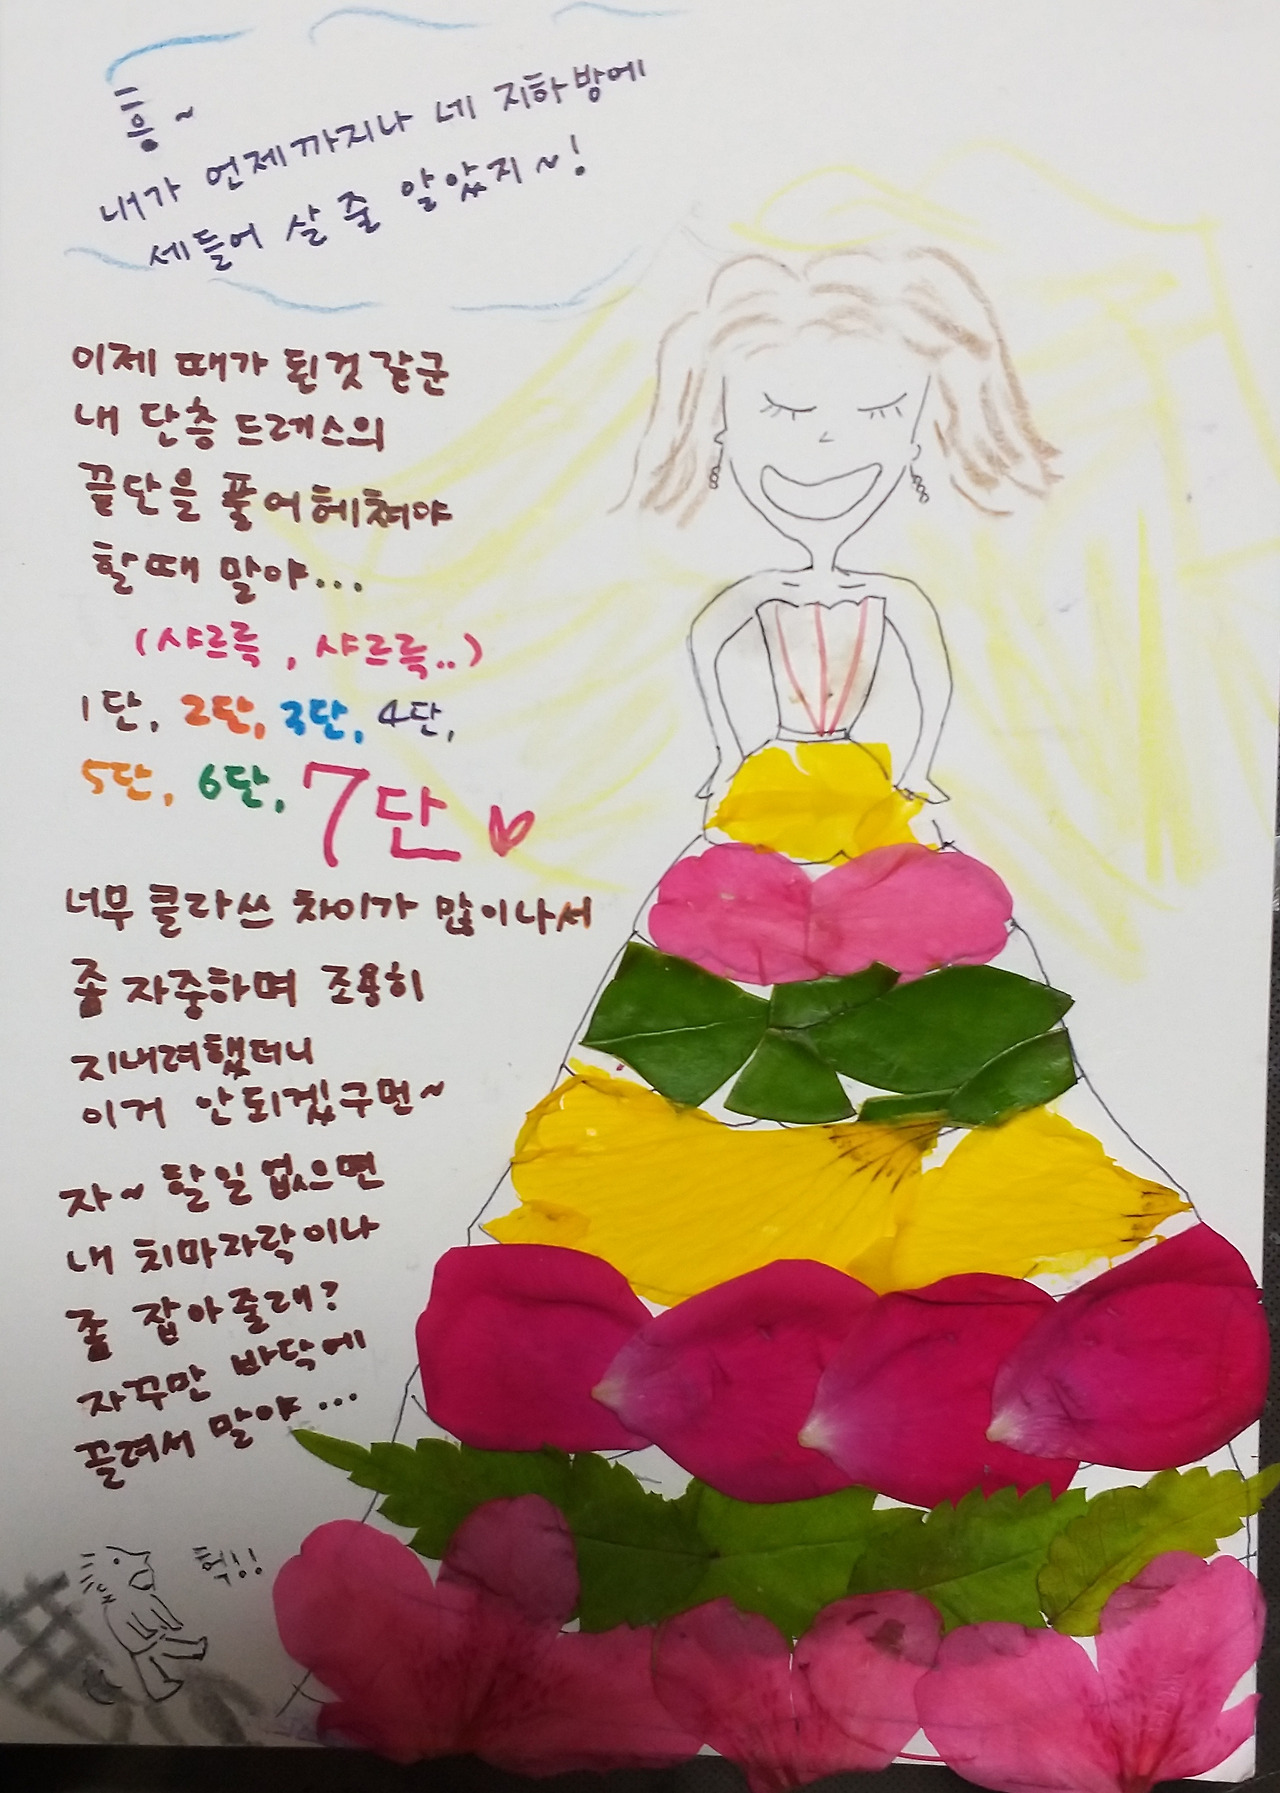 흥~
내가 언제까지나 네 지하방에
세들어 살 줄 알았지~!
이제 때가 된것 같군
내 단층 드레스의
끝단을 풀어헤쳐야
할때 말야...
(샤르륵, 샤르륵..)
1단, 2단, 3단, 4단,
5단, 6단, 7단
너무 클라쓰 차이가 많이나서
좀 자중하며 조용히
지내려했더니
이거 안되겠구먼~
자~ 할일없으면
내 치마자락이나
좀 잡아줄래?
자꾸만 바닥에
끌려서 말야...
헉!!